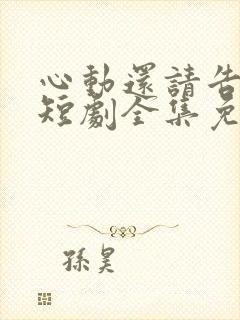 心動還請告
短劇全集免
孫昊